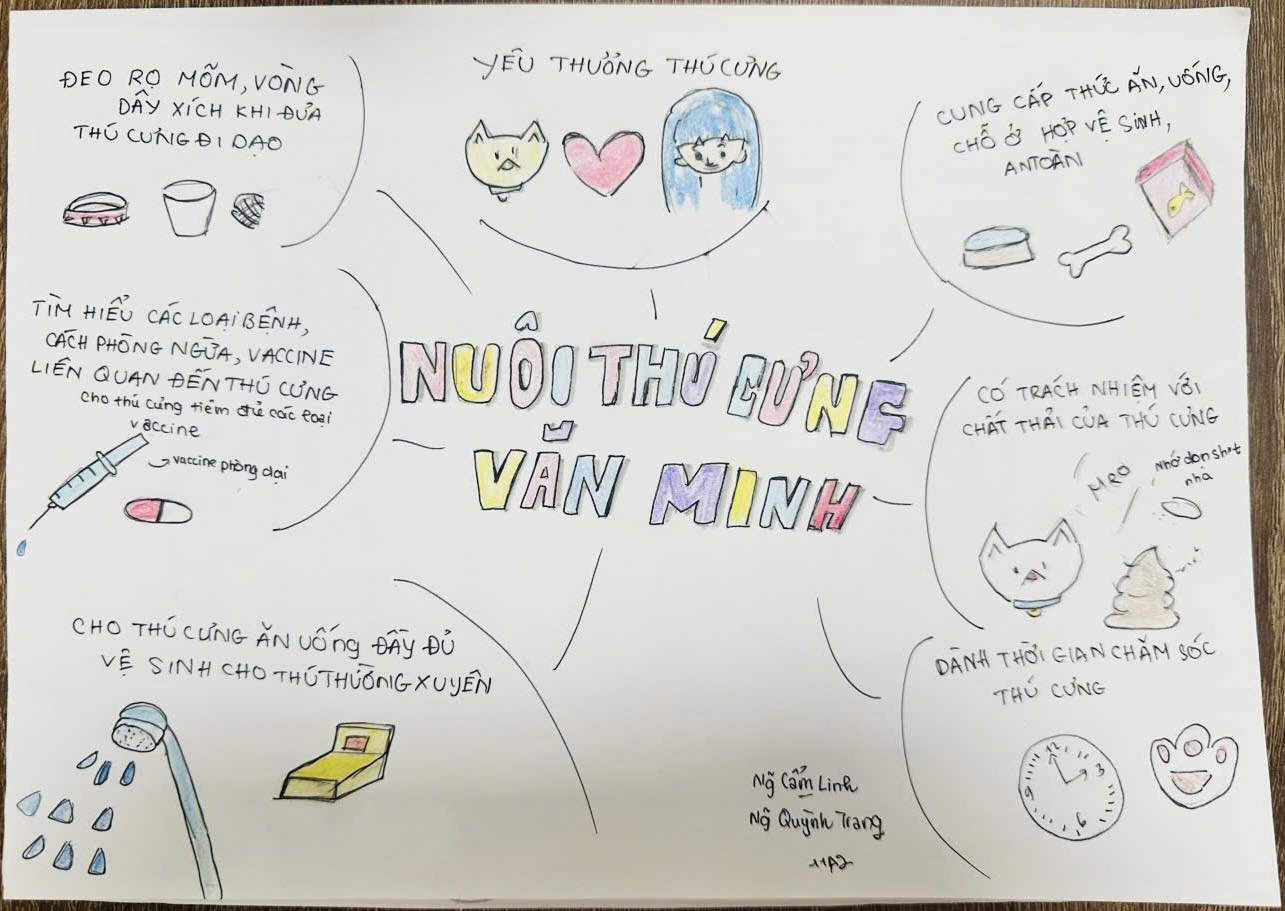 YÊU THƯƠNG THÚ CƯNG
ĐEO RỌ MÕM, VÒNG
DÂY XÍCH KHI ĐƯA
THÚ CƯNG ĐI DẠO
CUNG CẤP THỨC ĂN, UỐNG,
CHỖ Ở HỢP VỆ SINH,
AN TOÀN
TÌM HIỂU CÁC LOẠI BỆNH,
CÁCH PHÒNG NGỪA, VACCINE
LIÊN QUAN ĐẾN THÚ CƯNG
cho thú cưng tiêm đủ các loại
vaccine
vaccine phòng dại
NUÔI THÚ CƯNG
VĂN MINH
CÓ TRÁCH NHIỆM VỚI
CHẤT THẢI CỦA THÚ CƯNG
MEO
Nhớ dọn shit
nha
CHO THÚ CƯNG ĂN UỐNG ĐẦY ĐỦ
VỆ SINH CHO THÚ THƯỜNG XUYÊN
DÀNH THỜI GIAN CHĂM SÓC
THÚ CƯNG
12
9 3
6
Ng̃ Cẩm Linh
Ng̃ Quỳnh Trang
11A2